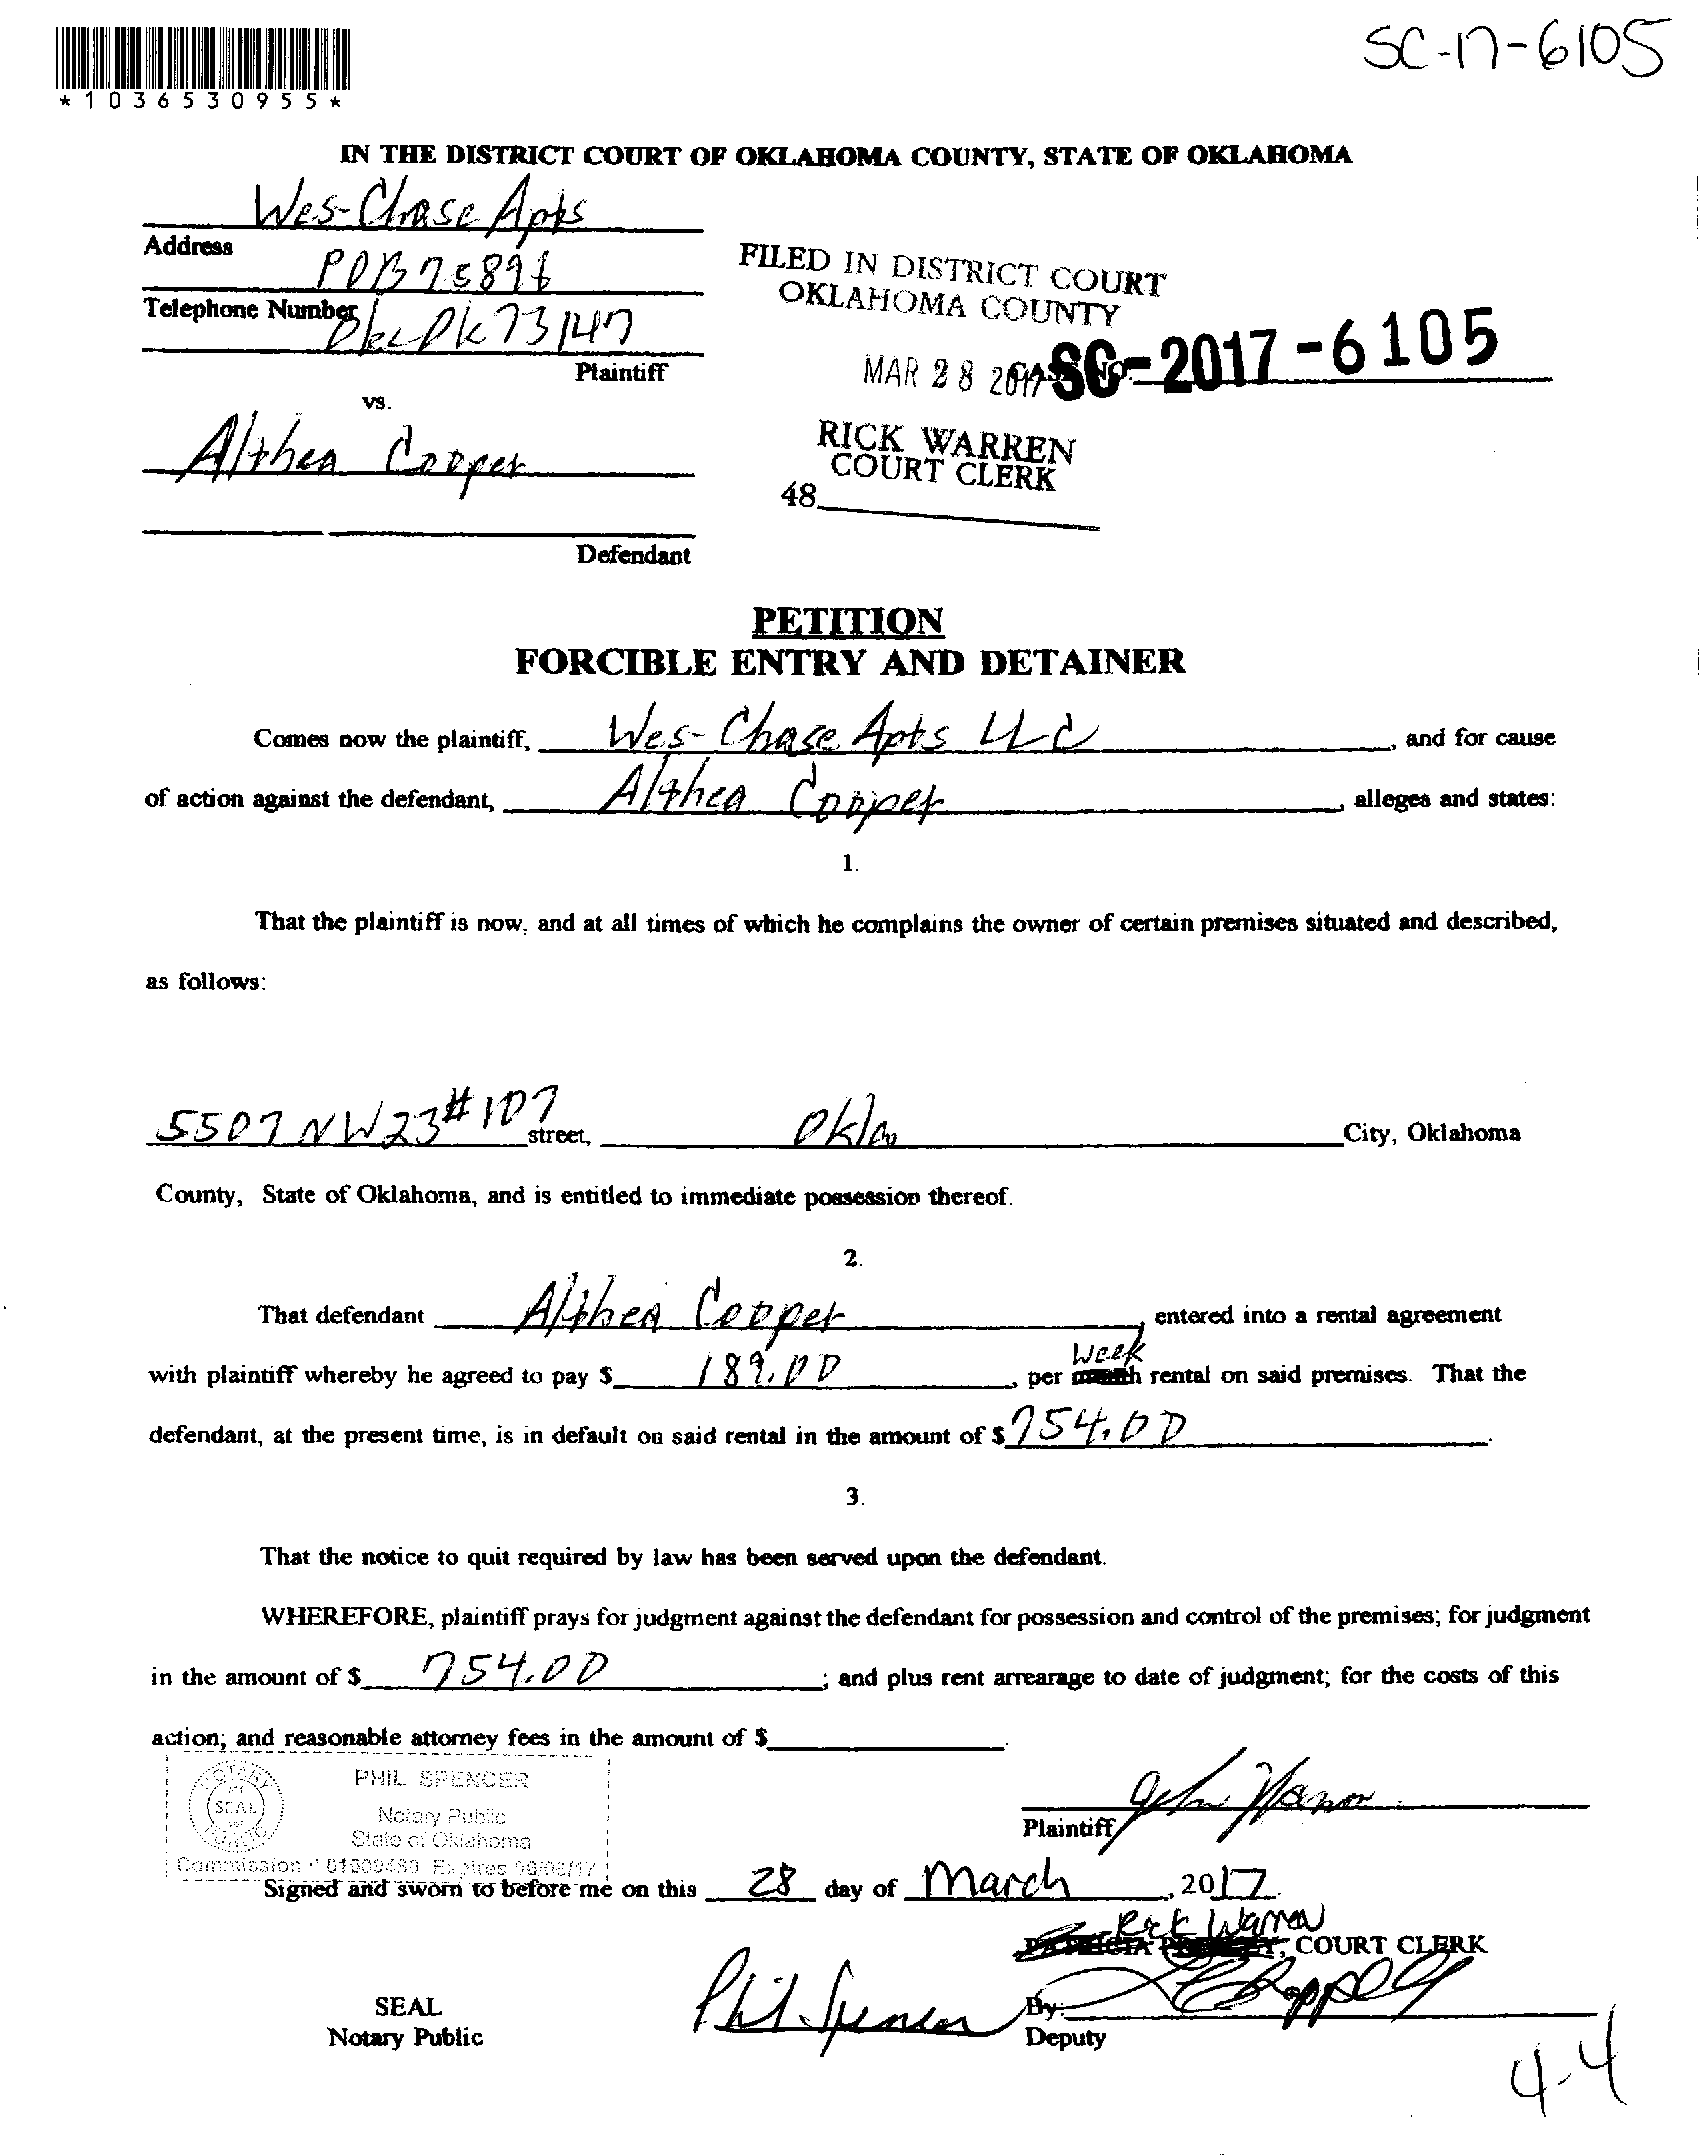 SC-17-6105
*1036530955*
IN THE DISTRICT COURT OF OKLAHOMA COUNTY, STATE OF OKLAHOMA
Wes-Chase Apts
Address
POB 75896
Telephone Number
Okc Ok 73147
Plaintiff
FILED IN DISTRICT COURT
OKLAHOMA COUNTY
MAR 28 2017
SC-2017-6105
vs.
Althea Cooper
RICK WARREN
COURT CLERK
48
Defendant
PETITION
FORCIBLE ENTRY AND DETAINER
Comes now the plaintiff, Wes-Chase Apts LLC, and for cause
of action against the defendant, Althea Cooper, alleges and states:
1.
That the plaintiff is now, and at all times of which he complains the owner of certain premises situated and described,
as follows:
5507 NW 23 #107 street, Okla City, Oklahoma
County, State of Oklahoma, and is entitled to immediate possession thereof.
2.
That defendant Althea Cooper, entered into a rental agreement
with plaintiff whereby he agreed to pay $ 189.00, per Week rental on said premises. That the
defendant, at the present time, is in default on said rental in the amount of $ 754.00.
3.
That the notice to quit required by law has been served upon the defendant.
WHEREFORE, plaintiff prays for judgment against the defendant for possession and control of the premises; for judgment
in the amount of $ 754.00; and plus rent arrearage to date of judgment; for the costs of this
action; and reasonable attorney fees in the amount of $
PHIL SPENCER
Notary Public
State of Oklahoma
SEAL
Plaintiff
Signed and sworn to before me on this 28 day of March, 2017
Rick Warren
, COURT CLERK
Phil Spencer
SEAL
Notary Public
By:
Deputy
4-4